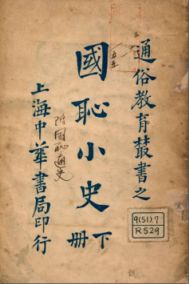 通俗教育叢書之
國恥小史
下冊
附國恥通史
上海中華書局印行
9(51)7
R529